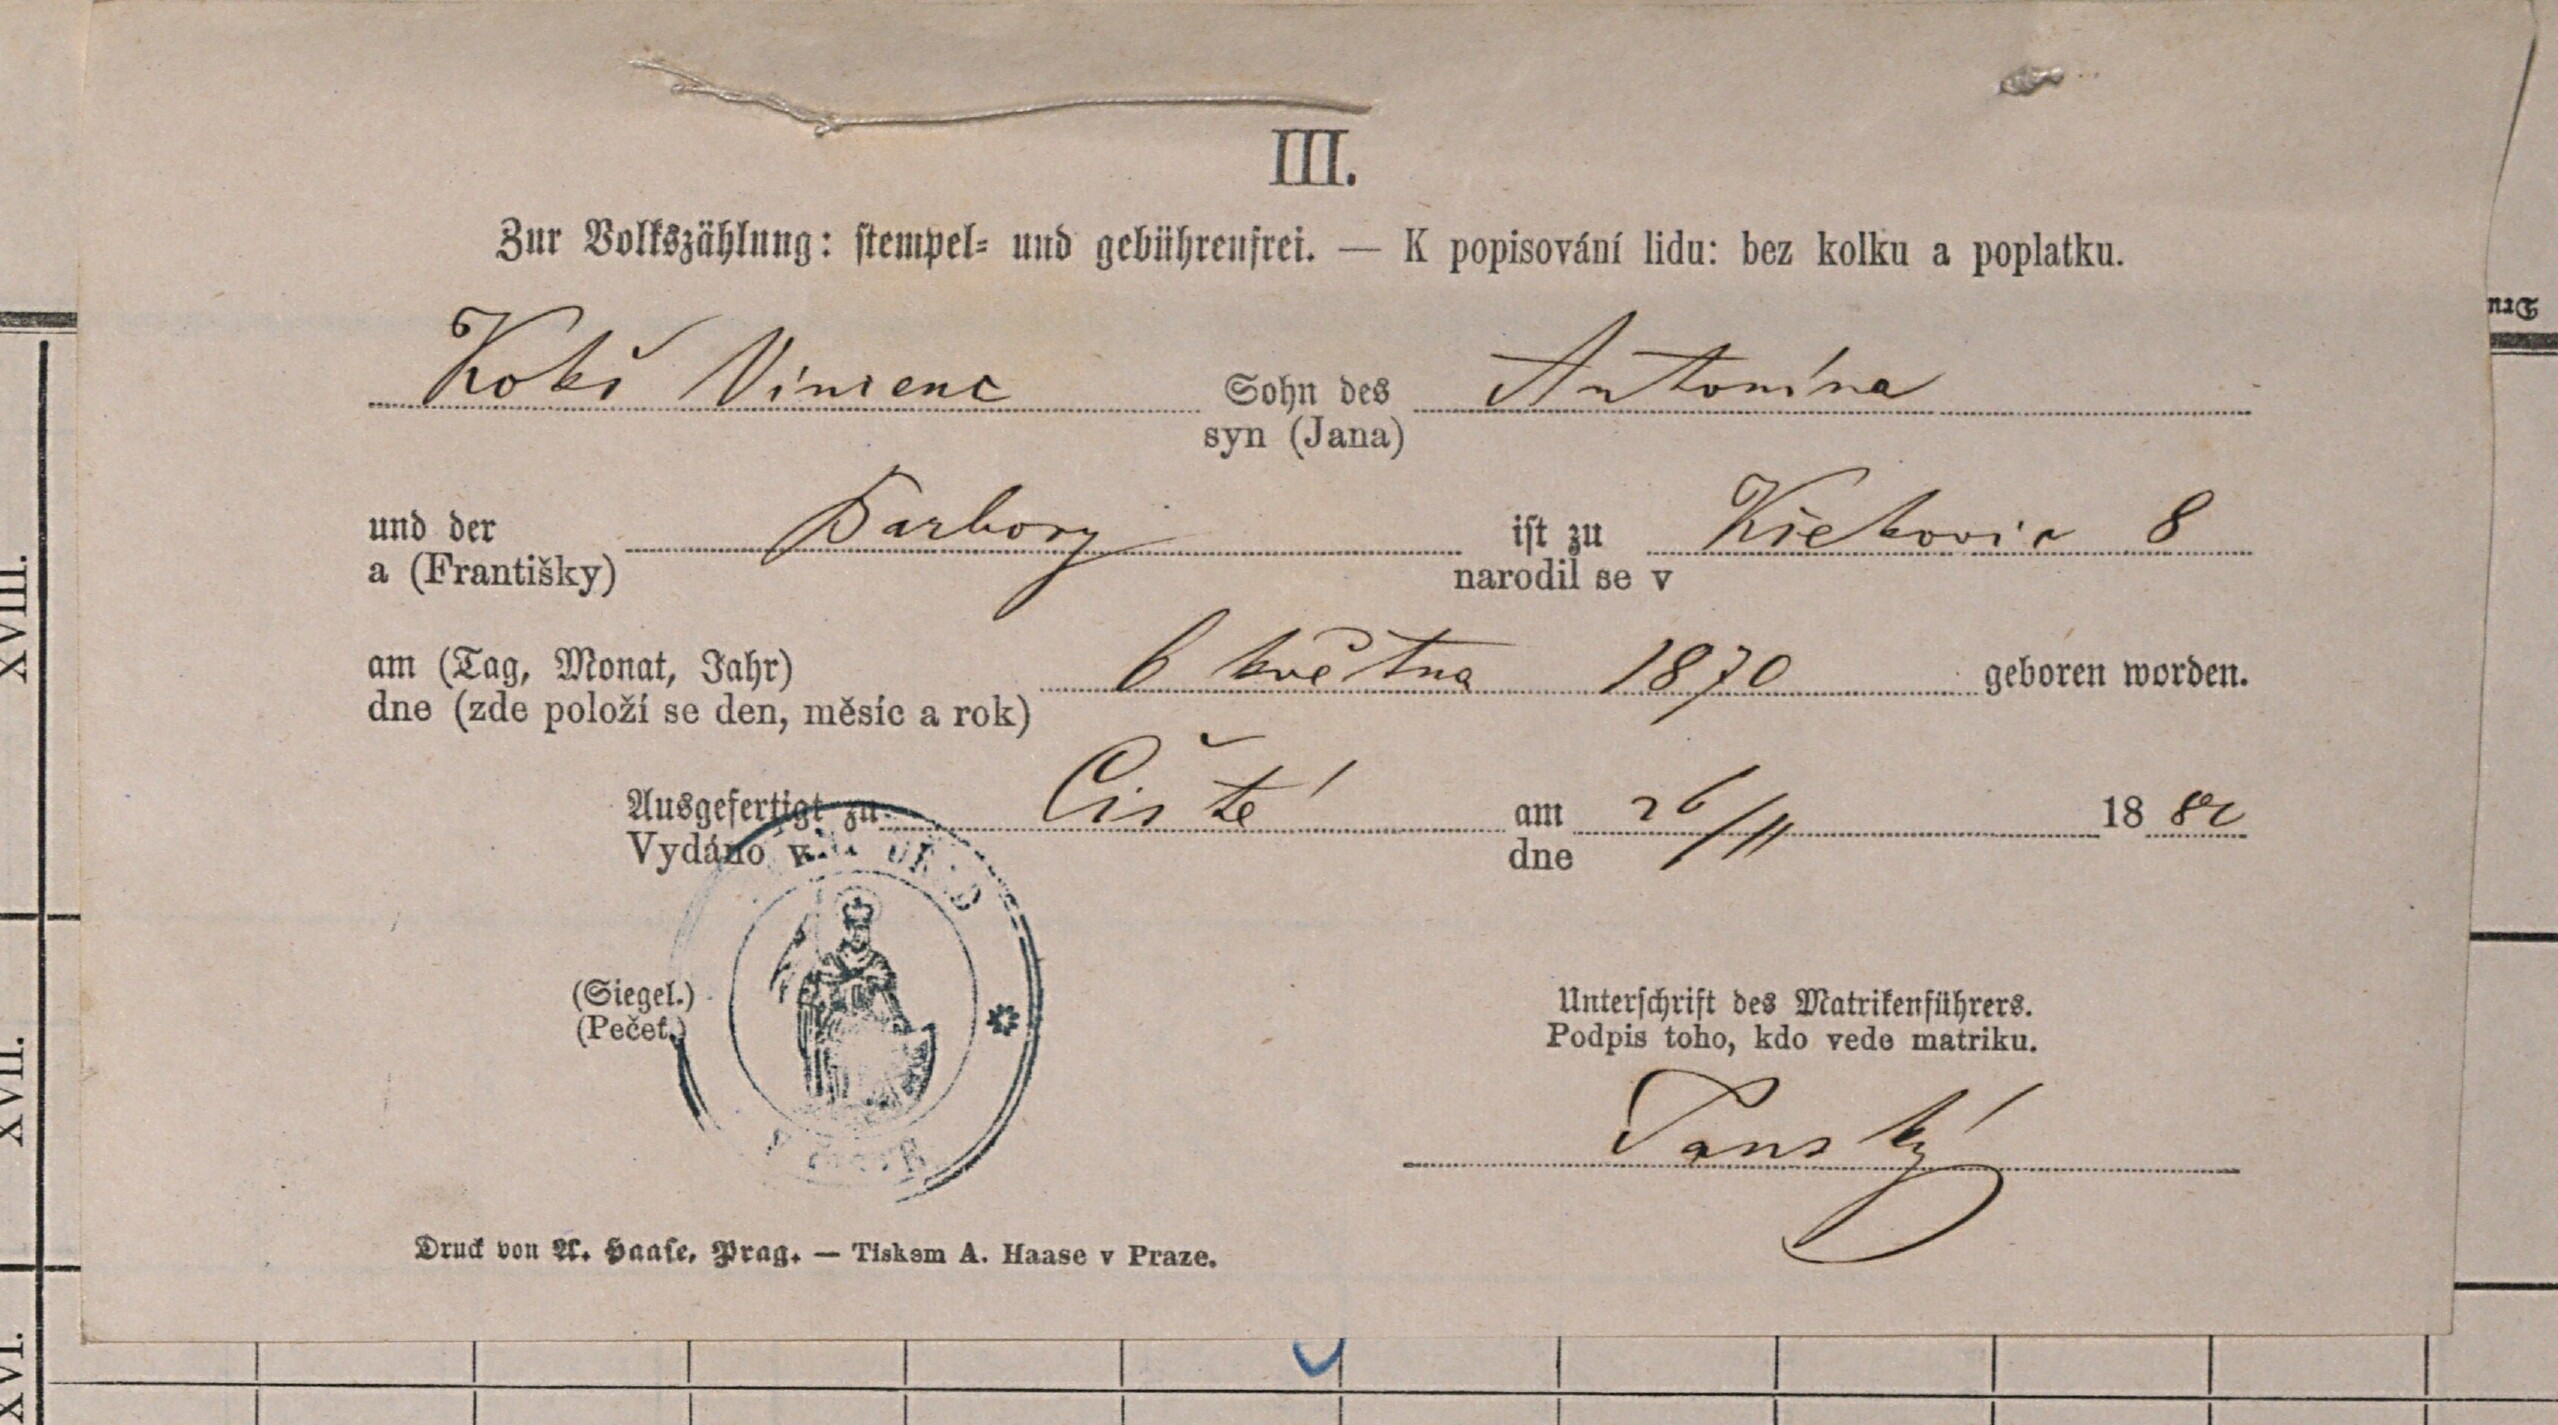 III.
Zur Volkszählung: stempel- und gebührenfrei. — K popisování lidu: bez kolku a poplatku.
Kokš Vincenc Sohn des Antonína
syn (Jana)
und der Barbory ist zu Křekovic 8
a (Františky) narodil se v
am (Tag, Monat, Jahr) 6 května 1870 geboren worden.
dne (zde položí se den, měsíc a rok)
Ausgefertigt zu Čisté am 26/11 18
Vydáno v dne
(Siegel.)
(Pečeť.)
Unterschrift des Matrikenführers.
Podpis toho, kdo vede matriku.
Panský
Druck von A. Haase, Prag. — Tiskem A. Haase v Praze.
XVIII.
XVII.
XVI.